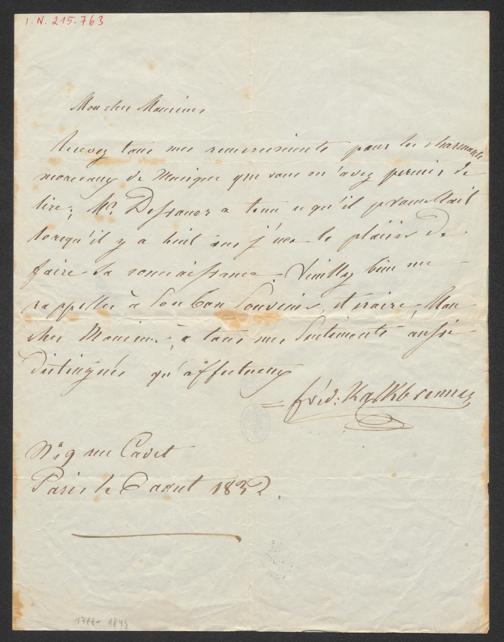 I. N. 215.763
Mon cher Monsieur
Recevez tous mes remerciments pour les charmants
morceaux de Musique que vous m'avez permis de
lire; Mr. Dessauer a tenu ce qu'il promettait
lorsqu'il y a huit ans j'eus le plaisir de
faire sa connaissance. Veuillez bien me
rappeller à son bon souvenir, et croire, Mon
cher Monsieur, à tous mes sentiments aussi
distingués qu'affectueux
Fréd: Kalkbrenner
No 9 rue Cadet
Paris le 6 aout 1832.
1849